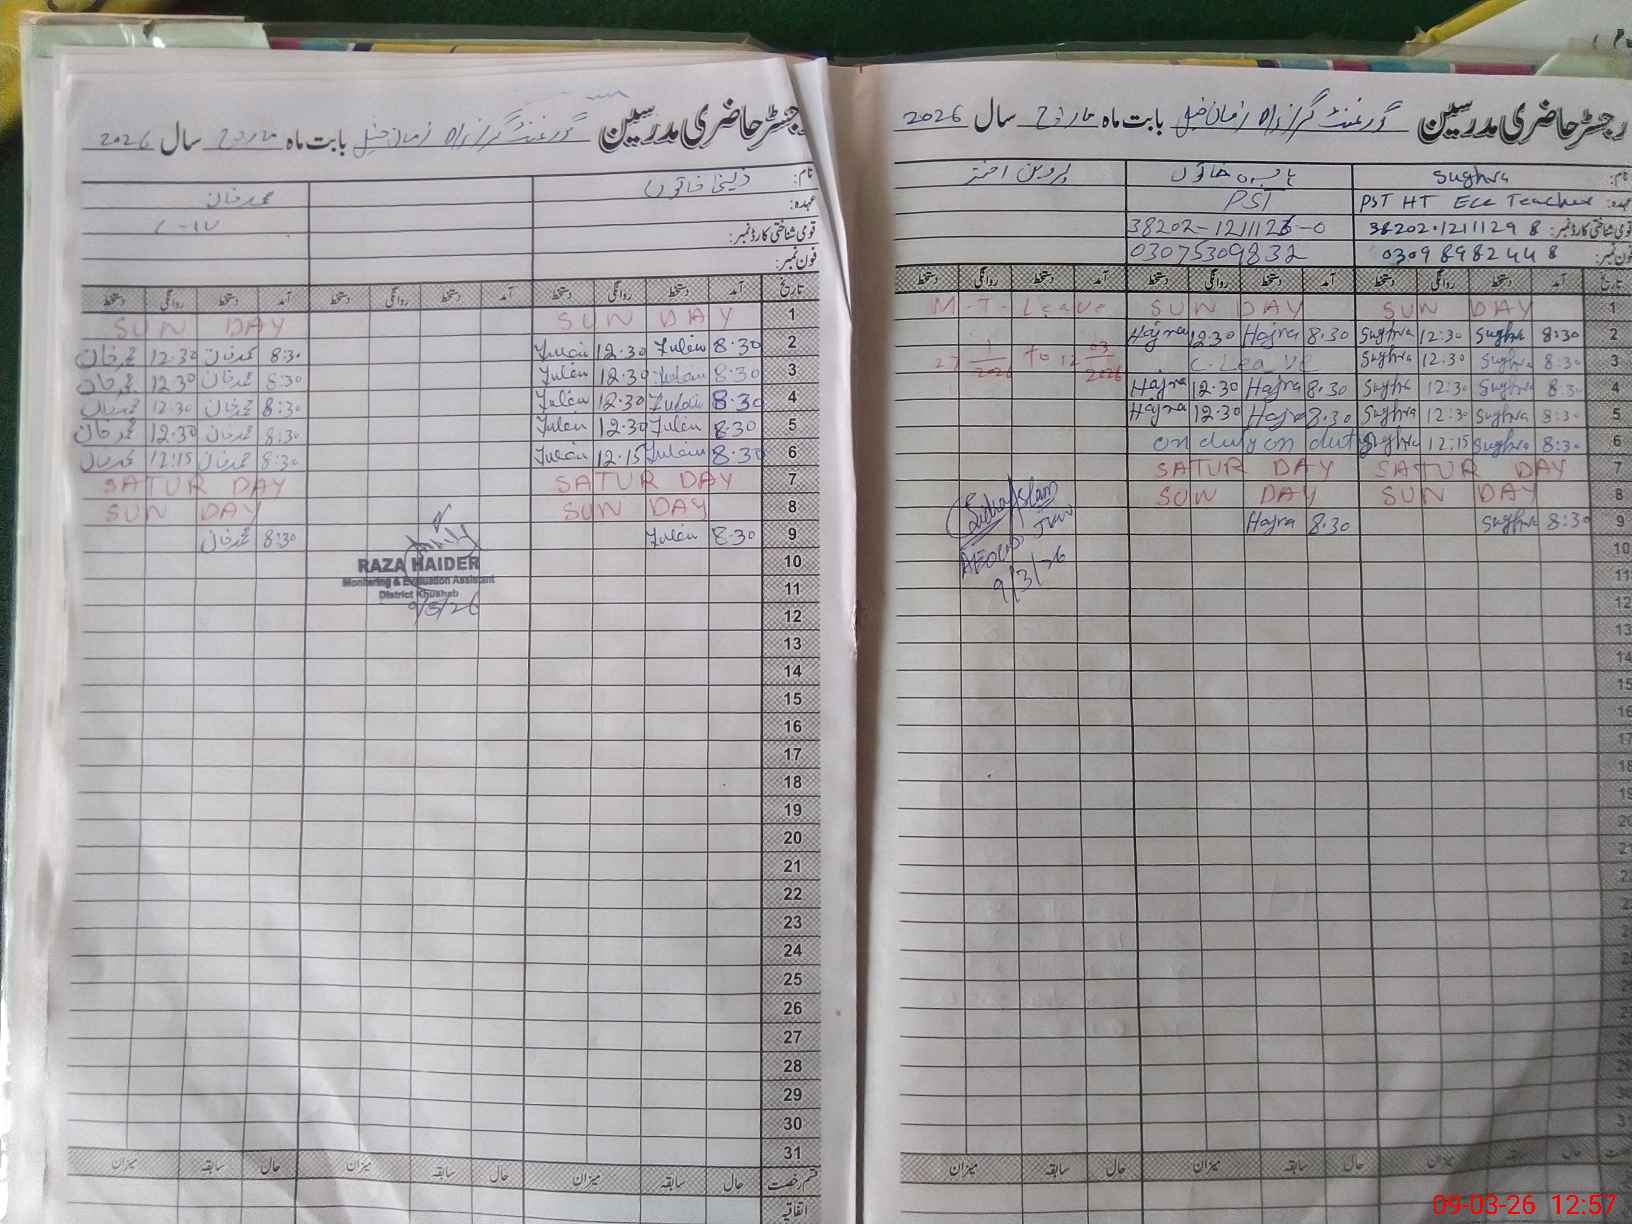 رجسٹر حاضری مدرسین گورنمنٹ گرلز بابت ماہ مارچ سال 2026
نام: Sughra
پروین اختر
عہدہ: PST HT Ece Teacher
PST
قومی شناختی کارڈ نمبر: 38202-1211129 8
فون نمبر: 03098982448
03075309832
تاریخ آمد دستخط روانگی دستخط آمد دستخط روانگی دستخط آمد دستخط روانگی دستخط
1 SUN DAY SUN DAY M-T-Leave
2 8:30 Sughra 12:30 Sughra 8.30 Hajra 12.30 Hajra
3 8:30 Sughra 12:30 Sughra C.Leave 27 1 2026 to 12 03 2026
4 8:30 Sughra 12:30 Sughra 8.30 Hajra 12.30 Hajra
5 8:30 Sughra 12:30 Sughra 8.30 Hajra 12.30 Hajra
6 8:30 Sughra 12:15 Sughra on duty on duty
7 SATUR DAY SATUR DAY
8 SUN DAY SUN DAY
9 8:30 Sughra 8.30 Hajra
10
11
12
13
14
15
16
17
18
19
20
21
22
9/3/26
حال سابقہ میزان حال سابقہ میزان حال سابقہ میزان
رجسٹر حاضری مدرسین گورنمنٹ گرلز بابت ماہ مارچ سال 2026
نام: خاتون
محمد خان
عہدہ:
C-IV
قومی شناختی کارڈ نمبر:
فون نمبر:
تاریخ آمد دستخط روانگی دستخط آمد دستخط روانگی دستخط آمد دستخط روانگی دستخط
1 SUN DAY SUN DAY
2 8.30 12.30 8:30 محمد خان 12:30 محمد خان
3 8.30 12.30 8:30 محمد خان 12:30 محمد خان
4 8.30 12.30 8:30 محمد خان 12:30 محمد خان
5 8.30 12.30 8:30 محمد خان 12:30 محمد خان
6 8.30 12.15 8:30 محمد خان 12:15 محمد خان
7 SATUR DAY SATUR DAY
8 SUN DAY SUN DAY
9 8.30 8:30 محمد خان
10
11
12
13
14
15
16
17
18
19
20
21
22
23
24
25
26
27
28
29
30
31
RAZA HAIDER
Monitoring & Evaluation Assistant
District Khushab
9/3/26
قسم رخصت حال سابقہ میزان حال سابقہ میزان حال سابقہ میزان
اتفاقیہ
09-03-26 12:57